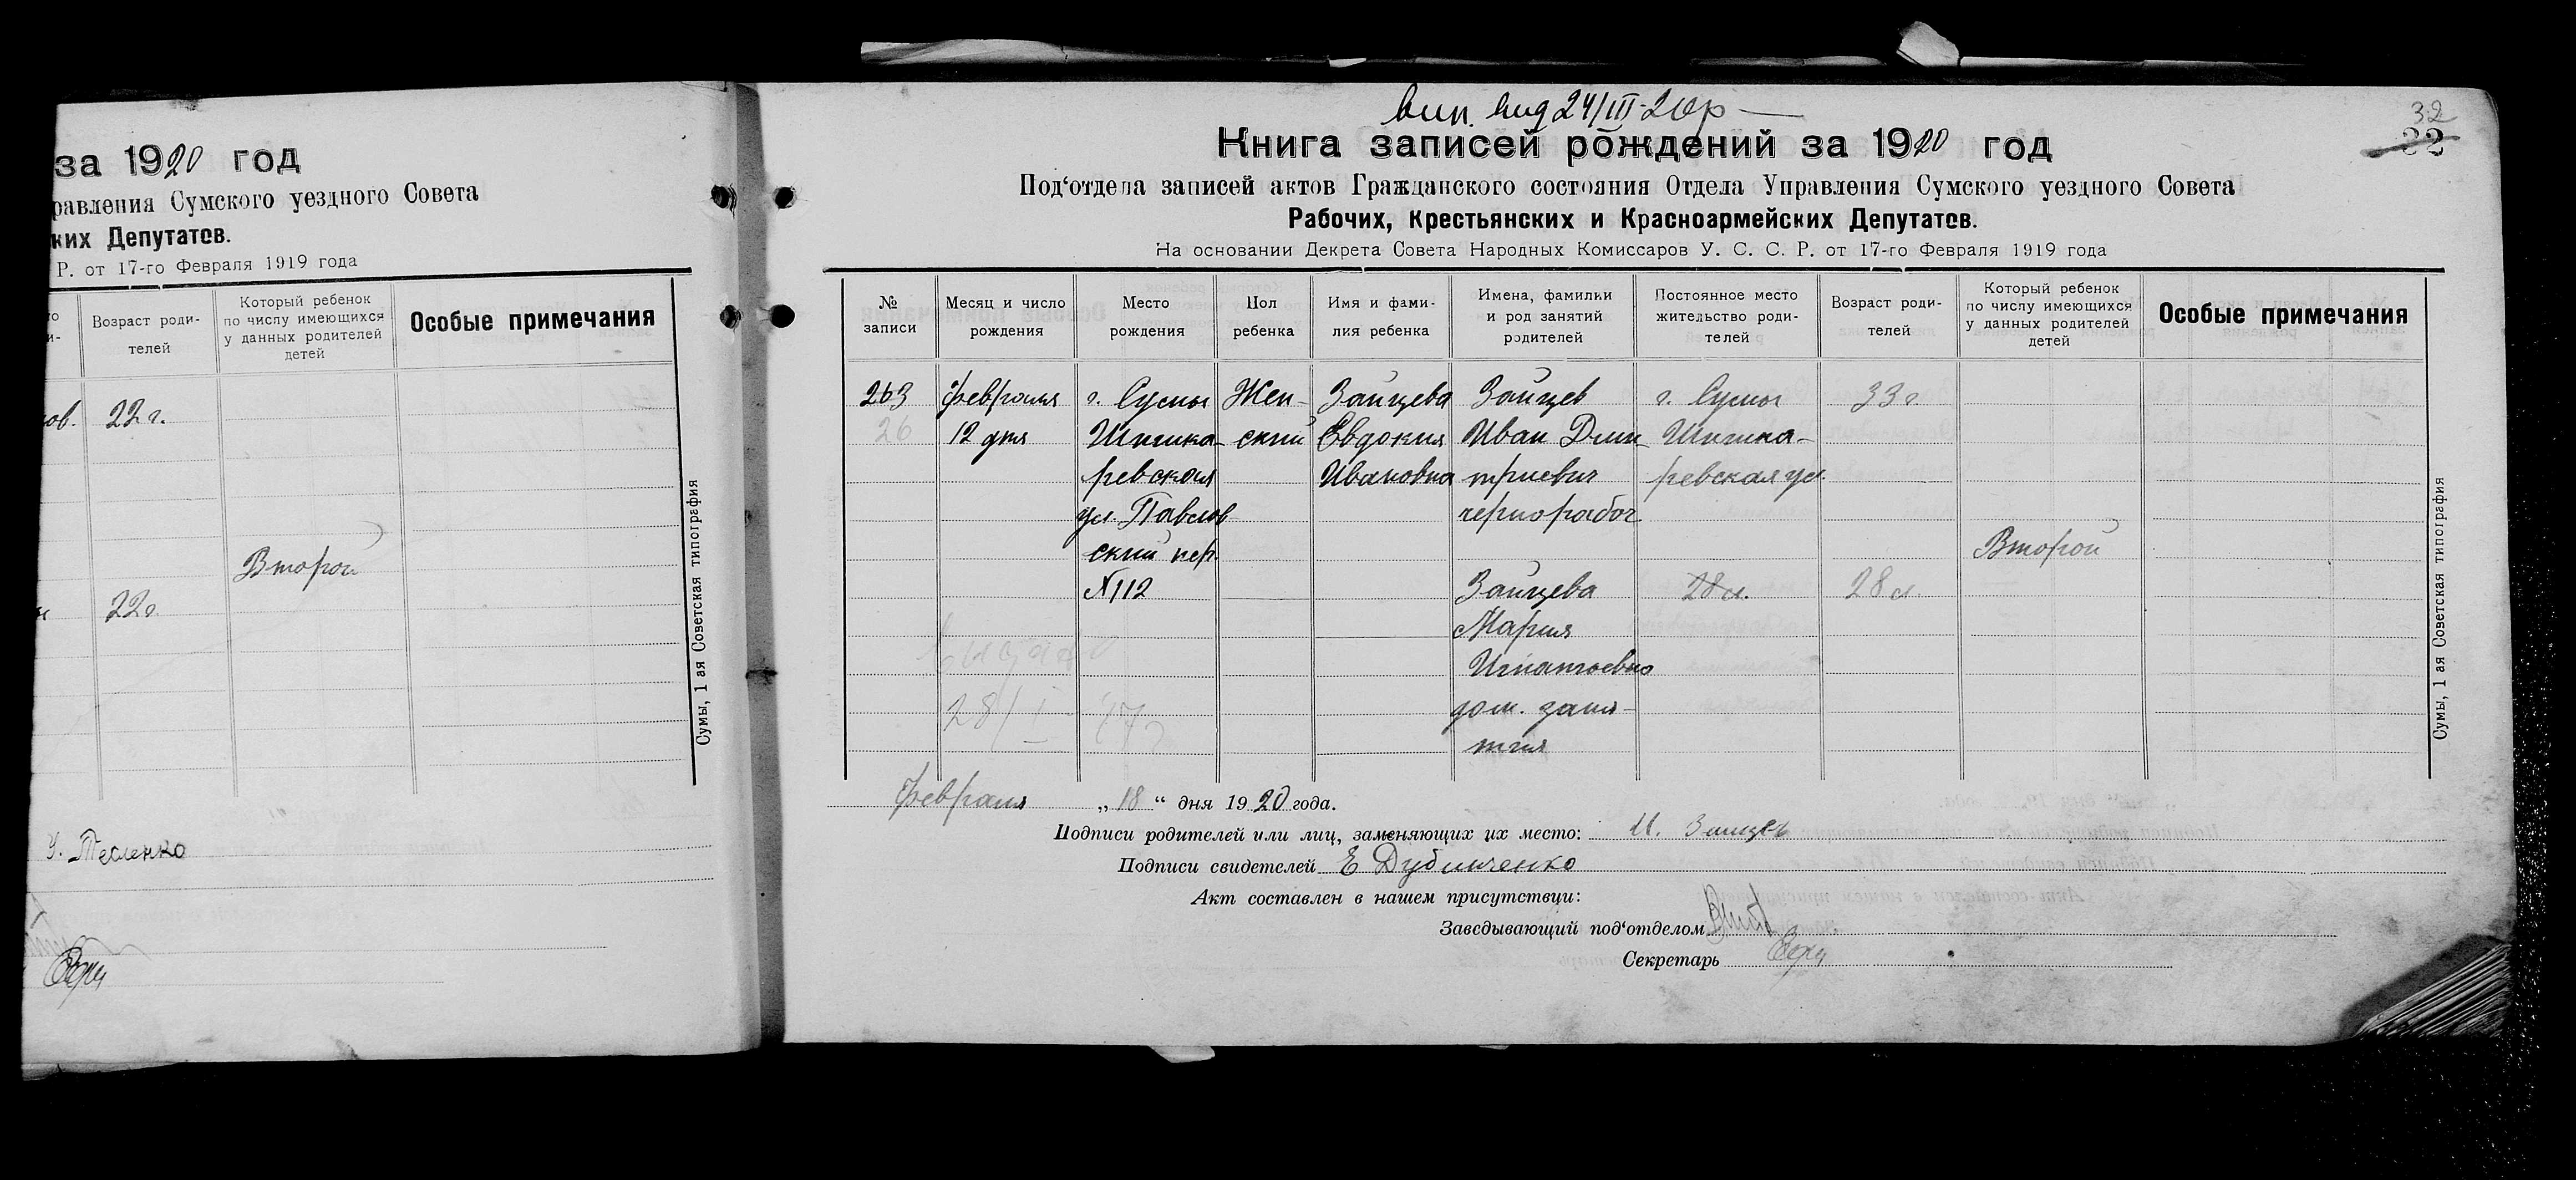 за 1920 год
равления Сумского уездного Совета
ких Депутатов.
Р. от 17-го Февраля 1919 года
Возраст роди-
телей
Который ребенок
по числу имеющихся
у данных родителей
детей
Особые примечания
ов. 22 г.
Второй
22 г.
Сумы, 1 ая Советская типография
Тесленко
вип. вид 24/III-20р
32
32
Книга записей рождений за 1920 год
Под‘отдела записей актов Гражданского состояния Отдела Управления Сумского уездного Совета
Рабочих, Крестьянских и Красноармейских Депутатов.
На основании Декрета Совета Народных Комиссаров У. С. С. Р. от 17-го Февраля 1919 года
№
записи
Месяц и число
рождения
Место
рождения
Пол
ребенка
Имя и фами-
лия ребенка
Имена, фамилии
и род занятий
родителей
Постоянное место
жительство роди-
телей
Возраст роди-
телей
Который ребенок
по числу имеющихся
у данных родителей
детей
Особые примечания
263
26
февраля
12 дня
г. Сумы
Шишка-
ревская
ул. Павлов
ский пер.
№112
Жен-
ский
Зайцева
Евдокия
Ивановна
Зайцев
Иван Дми-
триевич
чернорабоч.
Зайцева
Мария
Игнатьевна
дом. заня-
тия
г. Сумы
Шишка-
ревская ул.
28 л.
33 г.
28 л.
Второй
Видано
28/I
Февраля „18“ дня 1920 года.
Подписи родителей или лиц, заменяющих их место: И. Зайцев
Подписи свидетелей Е Дубинченко
Акт составлен в нашем присутствуи:
Заведывающий под‘отделом
Секретарь
Сумы, 1 ая Советская типография